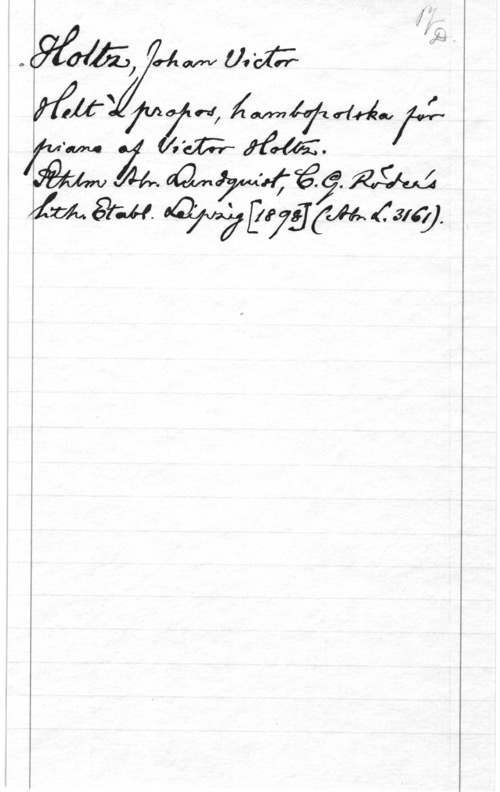 17/D.
Holtz, Johan Victor
Helt à propos, hambopolska för
piano af Victor Holtz.
Sthlm Abr. Lundquist, C.G. Röder's
lith. Etabl. Leipzig [1898] (Abr. L. 3161).